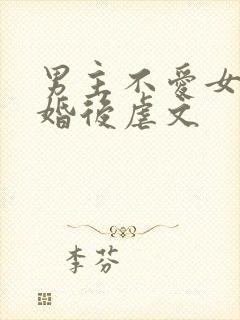 男主不愛女
婚後虐文
李芬